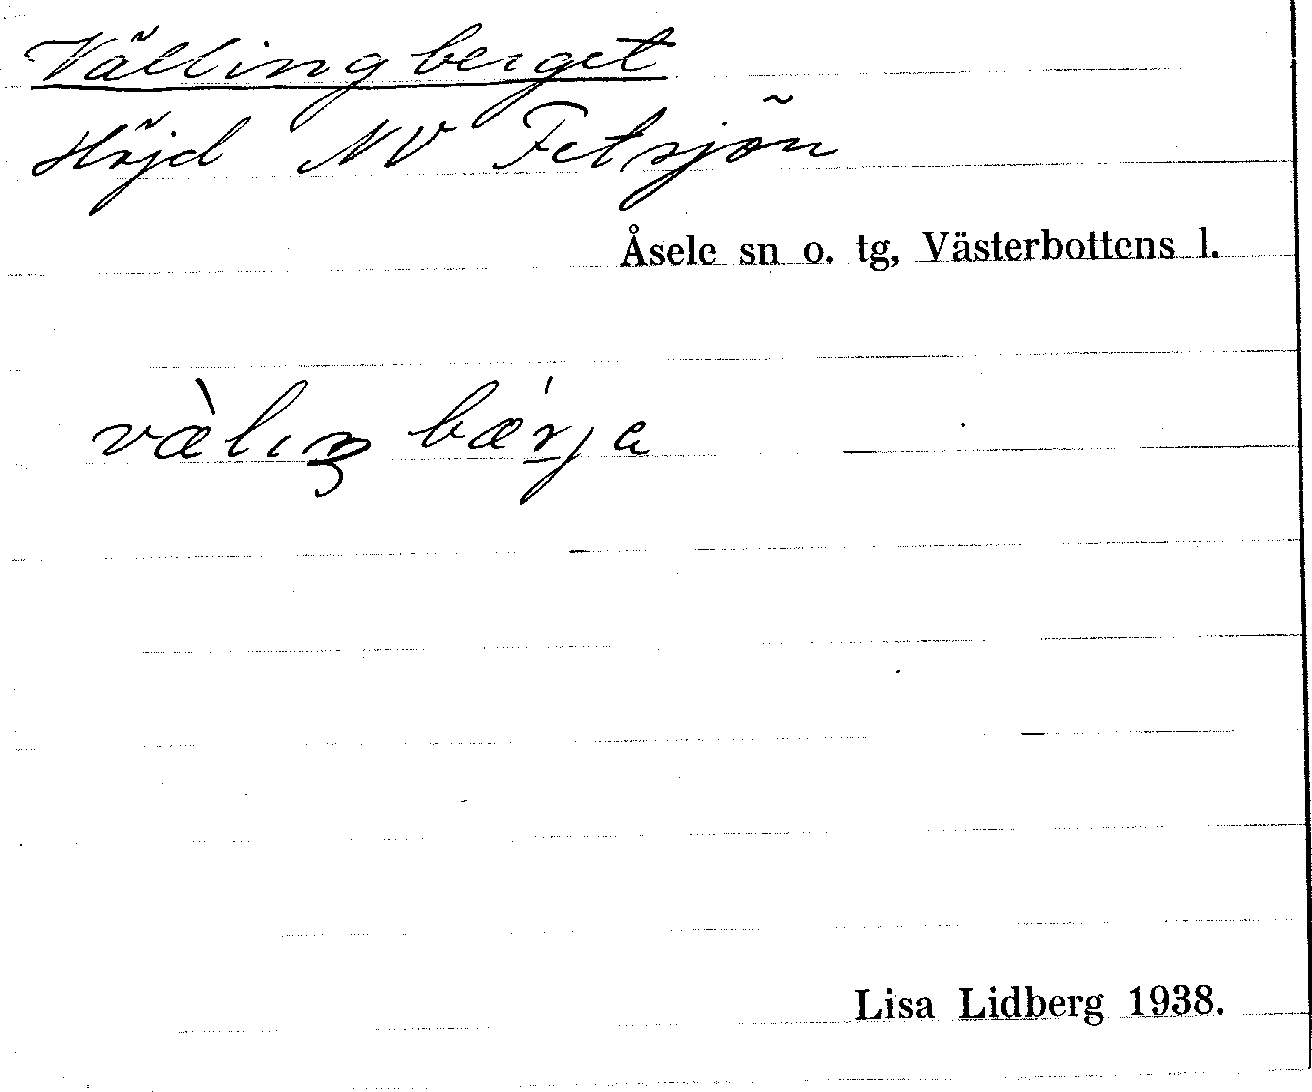 Vällingberget
Höjd NV Fetsjön
Åsele sn o. tg, Västerbottens l.
væ̀lıŋ bǽrja
Lisa Lidberg 1938.